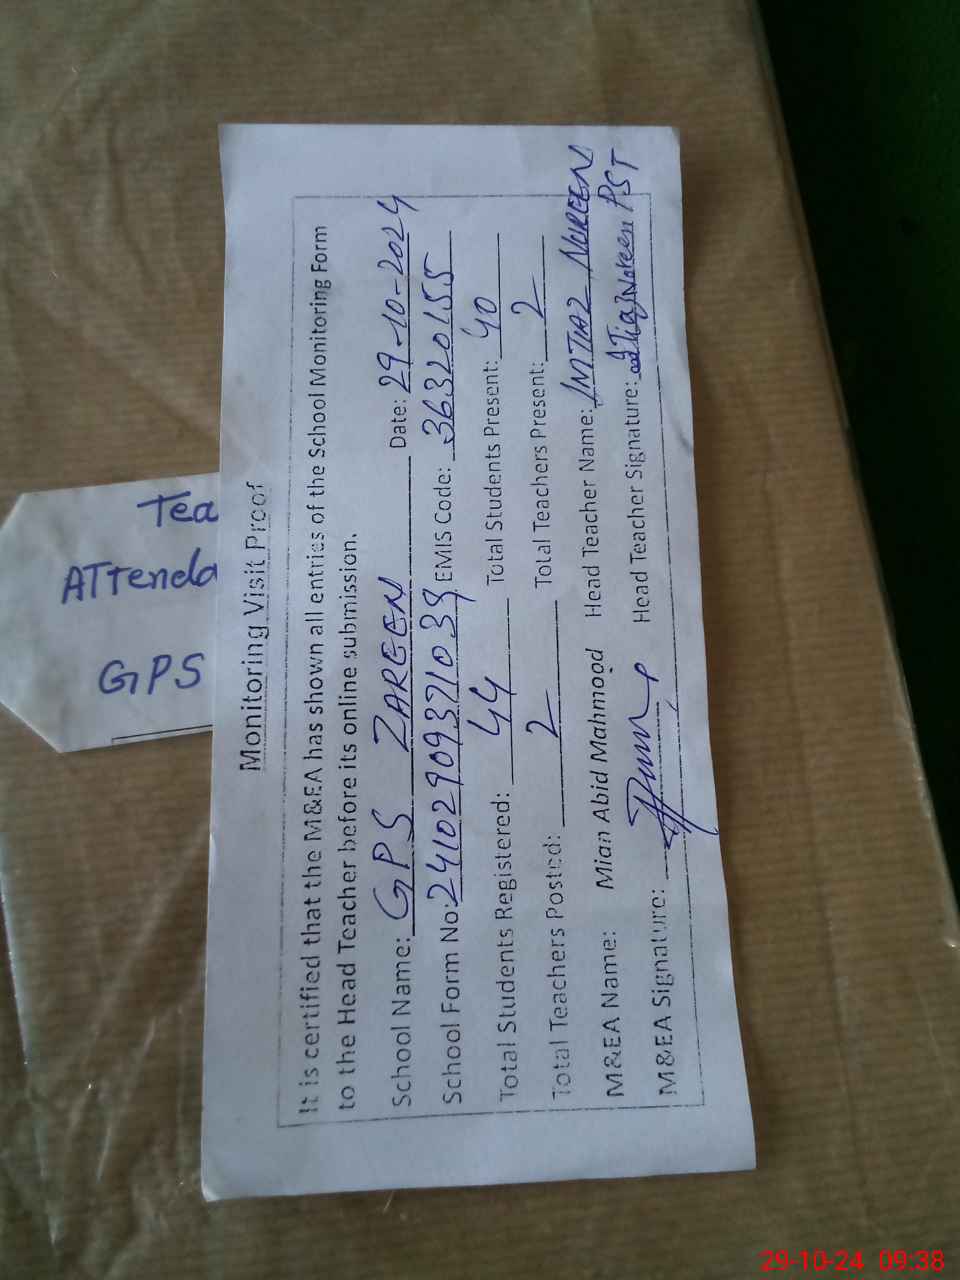 Monitoring Visit Proof
It is certified that the M&EA has shown all entries of the School Monitoring Form
to the Head Teacher before its online submission.
School Name: GPS ZAREEN Date: 29-10-2024
School Form No: 24102909371039 EMIS Code: 36320155
Total Students Registered: 44 Total Students Present: 40
Total Teachers Posted: 2 Total Teachers Present: 2
M&EA Name: Mian Abid Mahmood Head Teacher Name: IMTIAZ NOREEN
M&EA Signature: Head Teacher Signature: Noreen PST
Tea
ATTenda
GPS
29-10-24 09:38